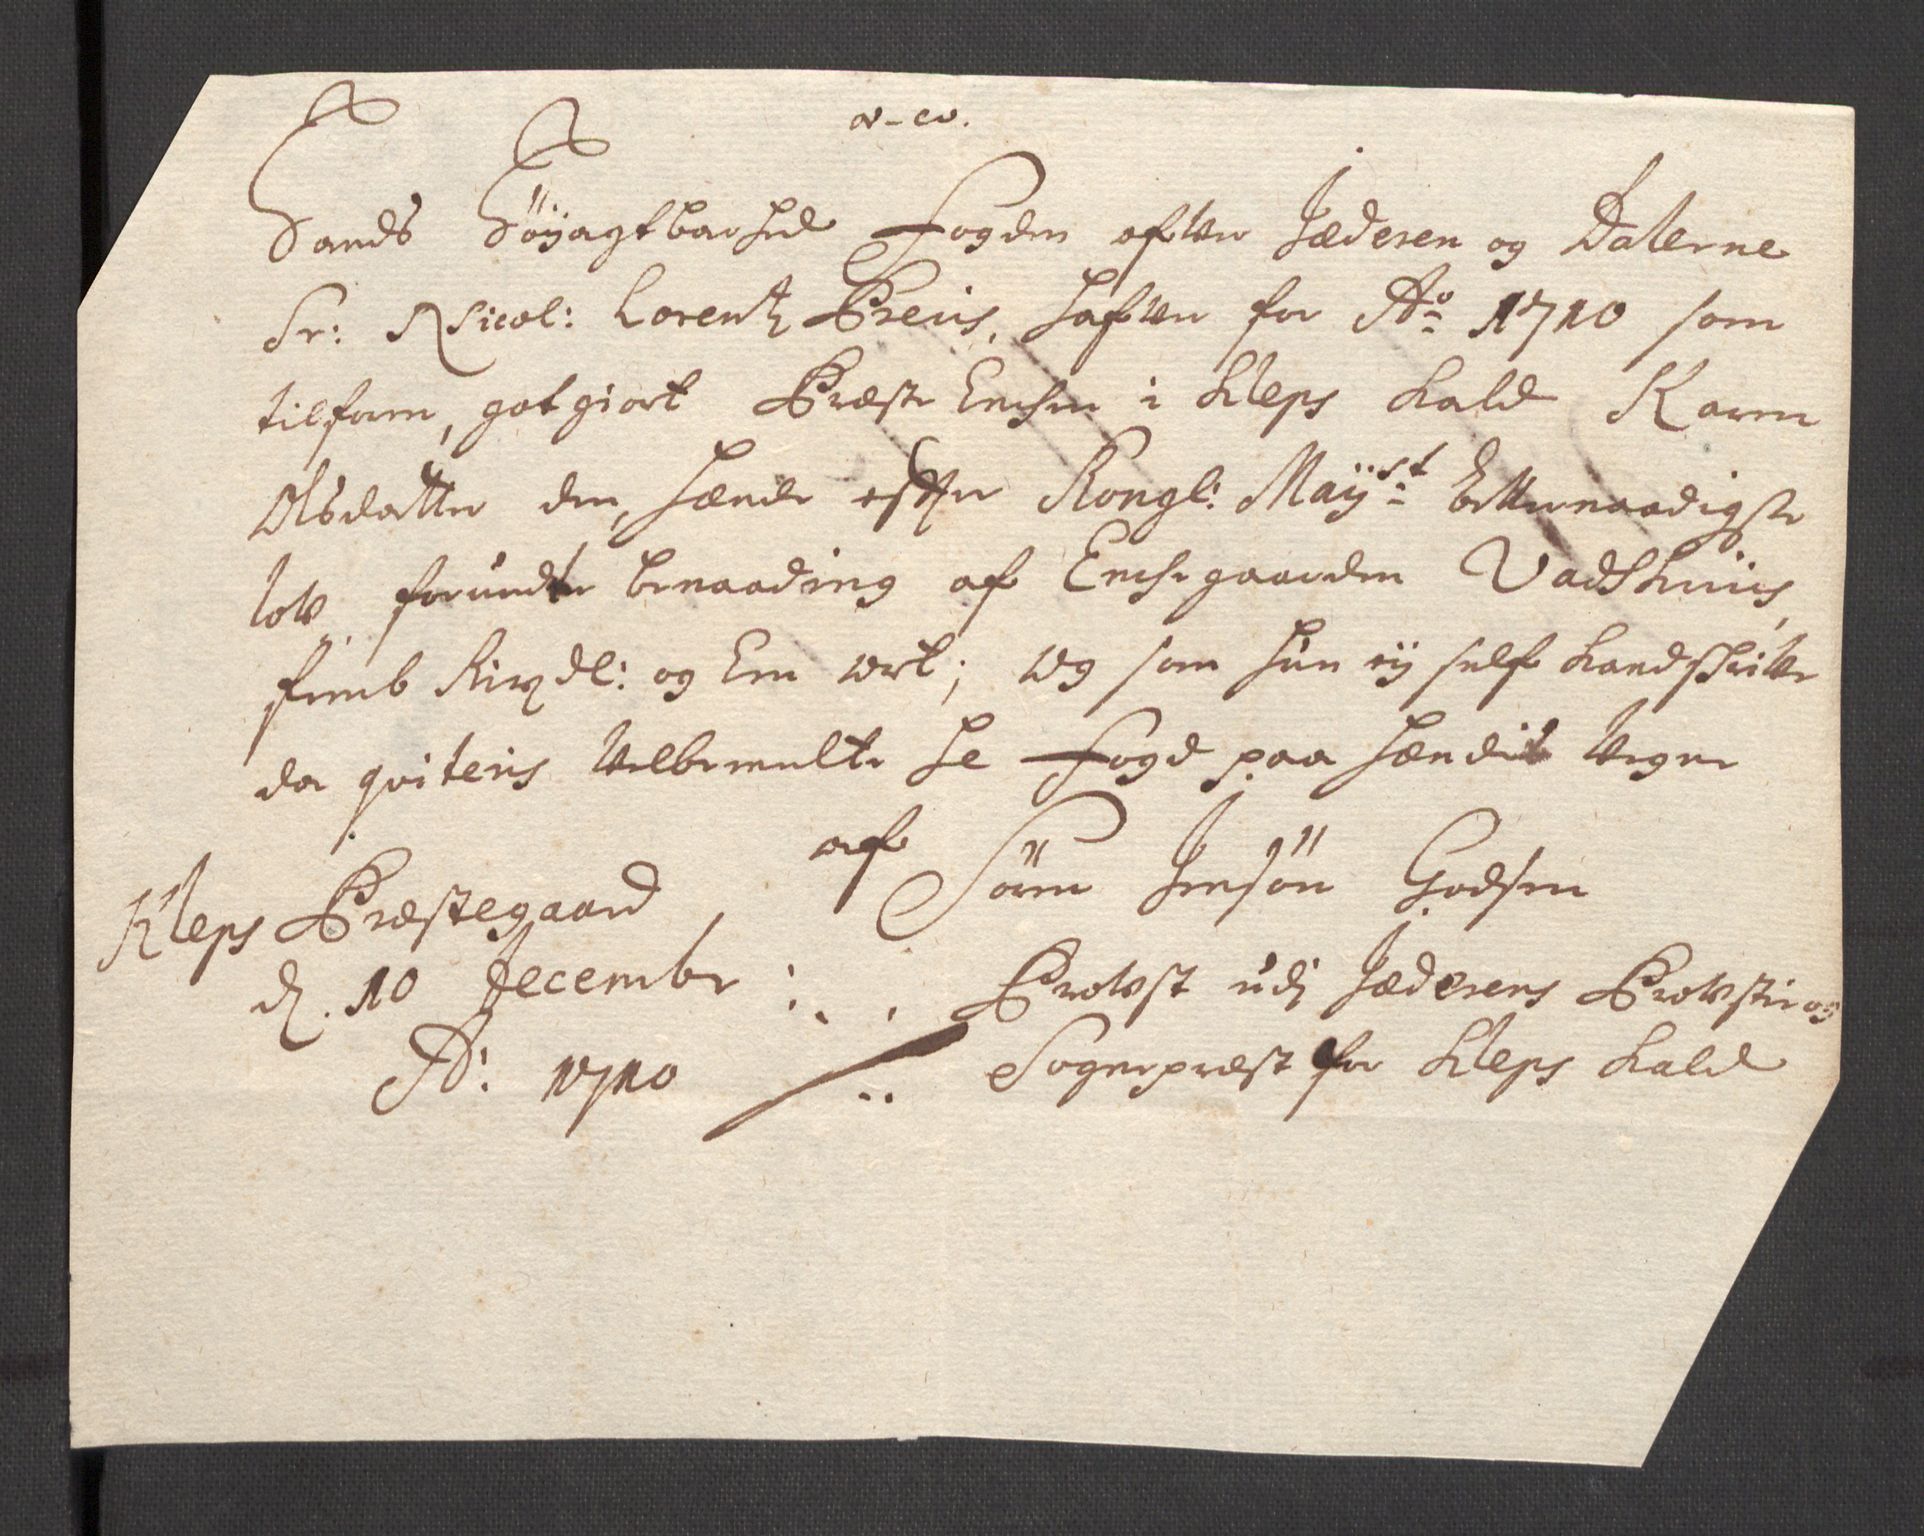 Hands Höÿagtbarhed Fogden ofver Jæderen og Dalerne
Sr: Nicol: Lorentz Preüs, hafver for Ao 1710 som
tilforn, gotgiort Præste Enchen i Kleps kald Karen
Olsdatter den, hende effter Kongl: Maÿst allernaadigste
lov, forundte benaading af Enchegaarden Vadshuus,
femb Rixdl: og Een ort; og som hun eÿ self kand skrive
da qviteris velbemelte hr Fogd paa hendis vegne
af Sören Jensön Godsen
Kleps Præstegaard
d. 10 Decembr
Ao: 1710
Provst udj Jæderens Provstie og
Sognepræst for Kleps kald